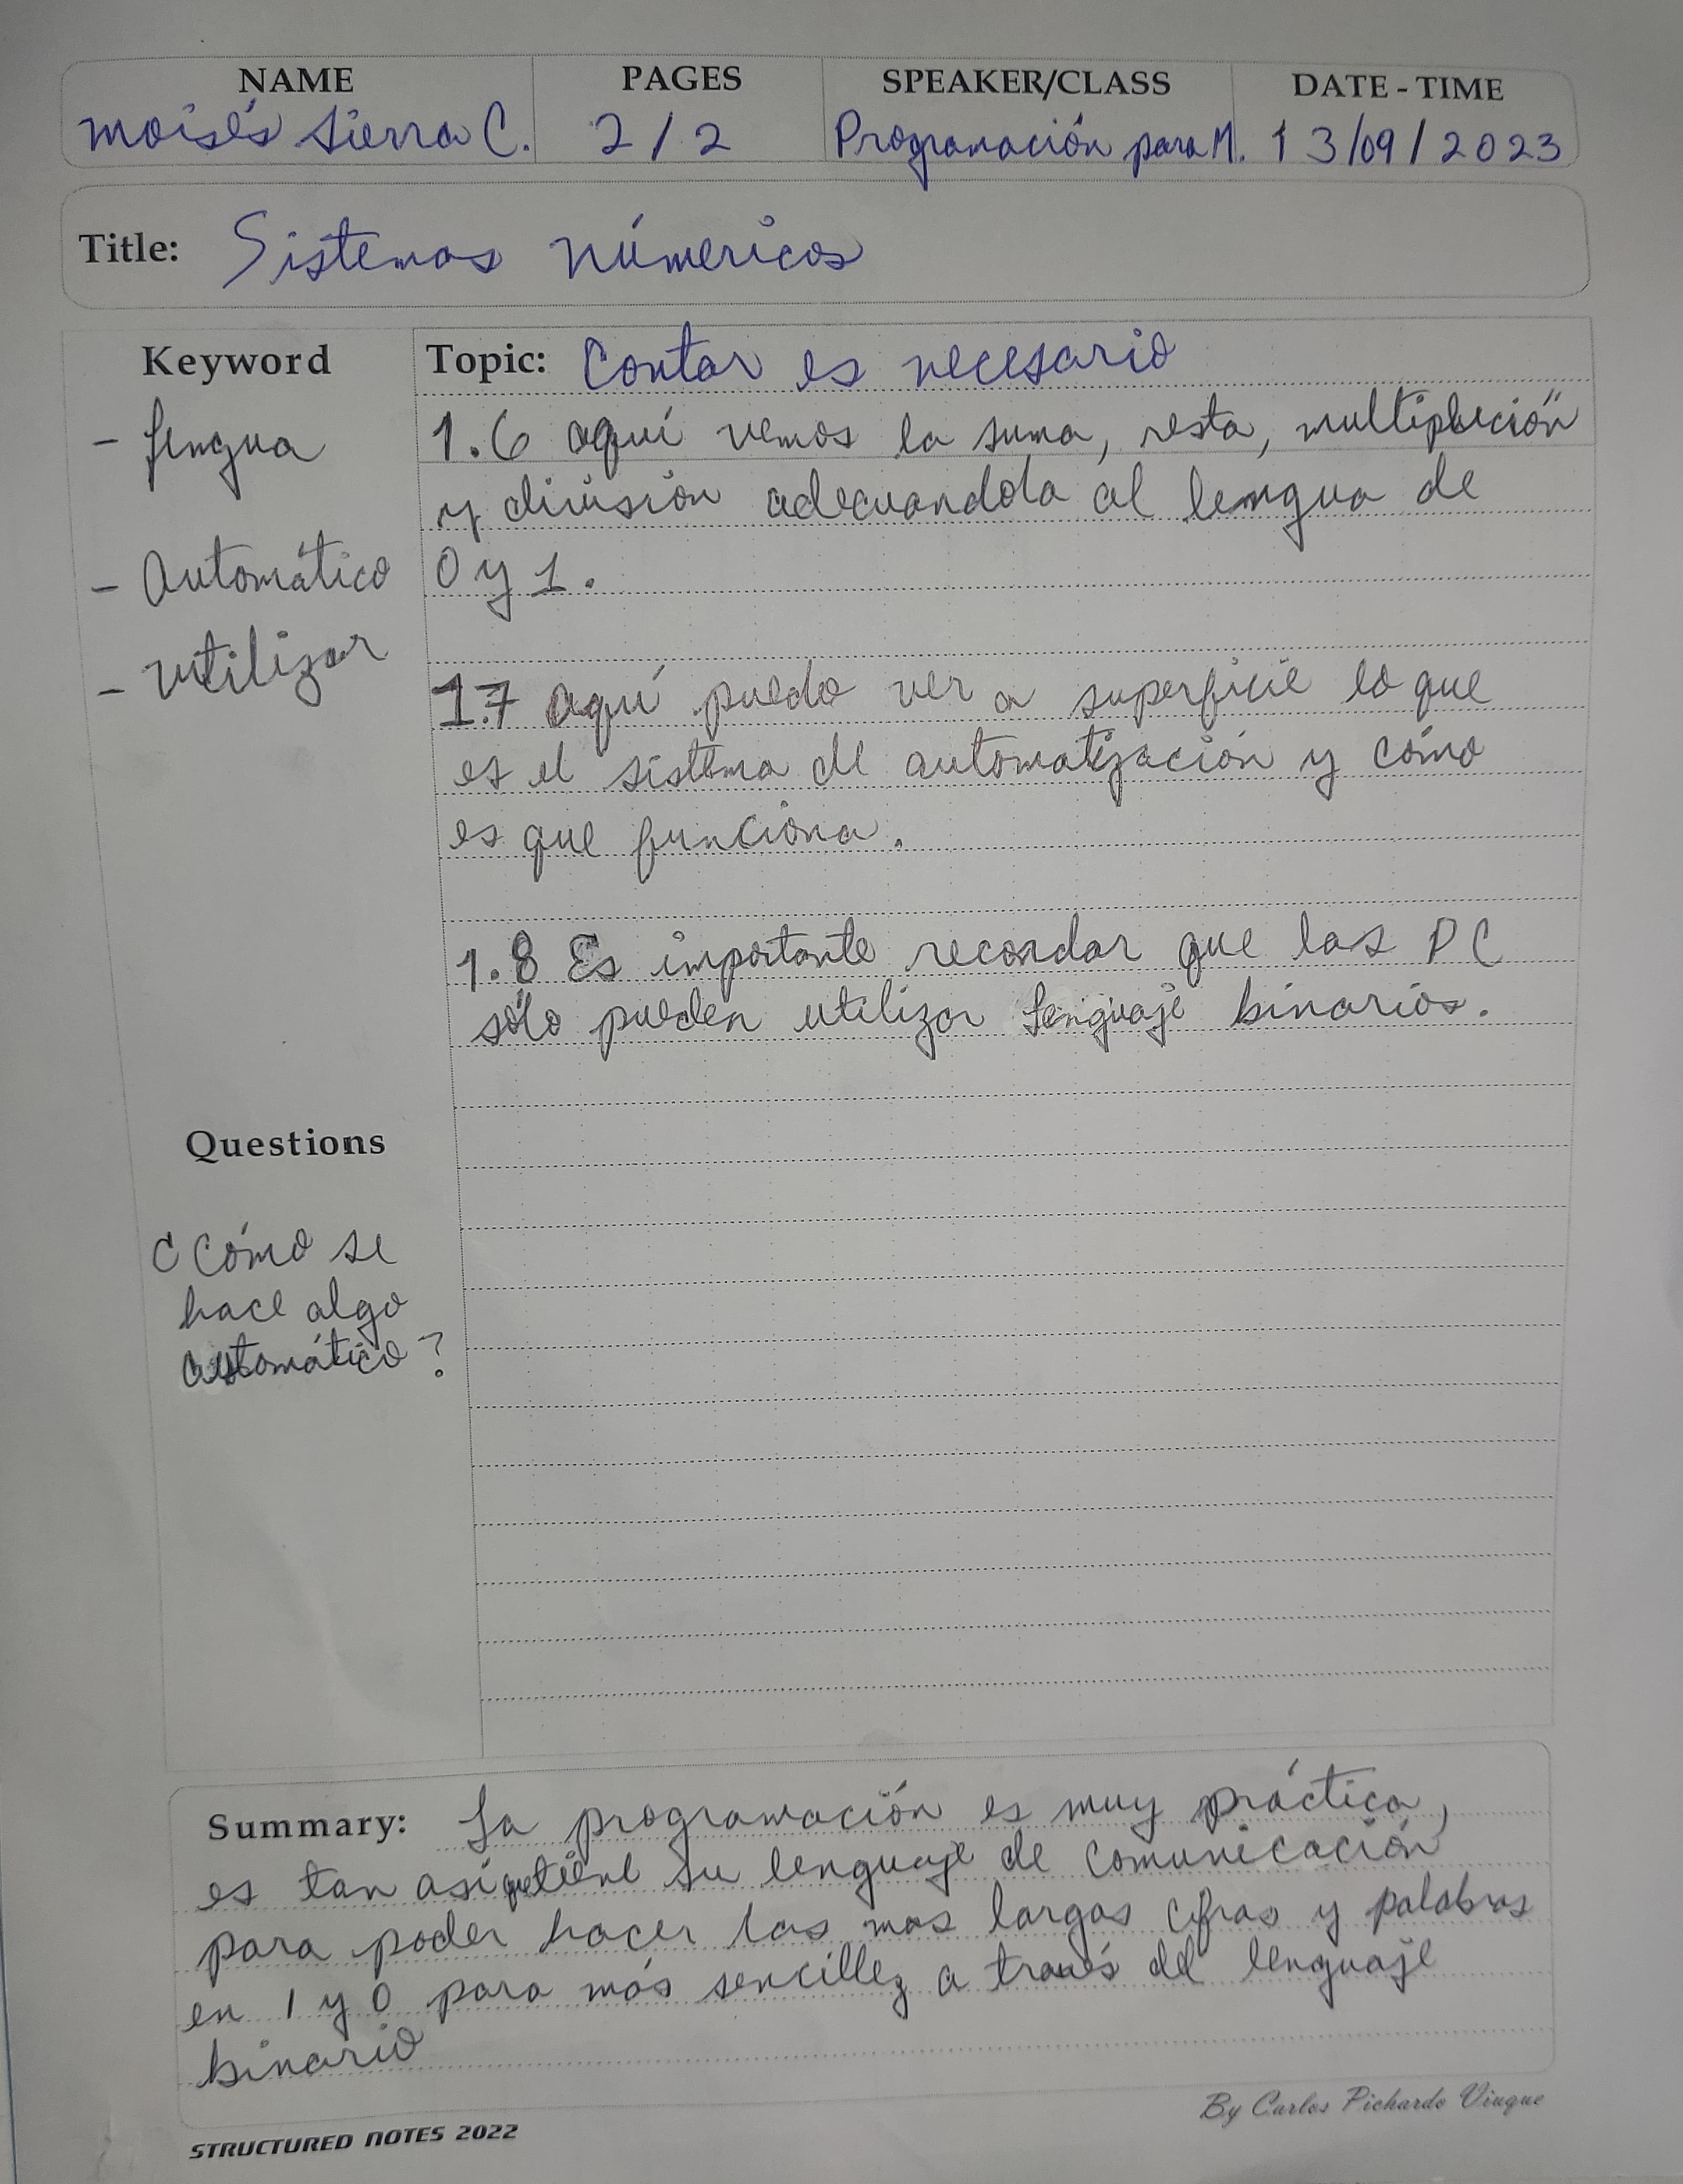 NAME PAGES SPEAKER/CLASS DATE - TIME
Moisés Sierra C. 2 / 2 Programación para M. 13/09/2023
Title: Sistemas Númericos
Keyword
- Lengua
- Automático
- Utilizar
Topic: Contar es necesario
1.6 aquí vemos la suma, resta,
y división adecuandola al lengua de
0 y 1.
1.7 Aquí puedo ver a superficie lo que
es el sistema de automatización y cómo
es que funciona.
1.8 Es importante recordar que las PC
sólo pueden utilizar Lenguaje binarios.
Questions
¿Cómo se
hace algo
automático?
Summary: La programación es muy práctica,
es tan así que tiene su lenguaje de comunicación
para poder hacer las mas largas cifras y palabras
en 1 y 0 para más sencillez a través del lenguaje
binario
By Carlos Pichardo Viuque
STRUCTURED NOTES 2022